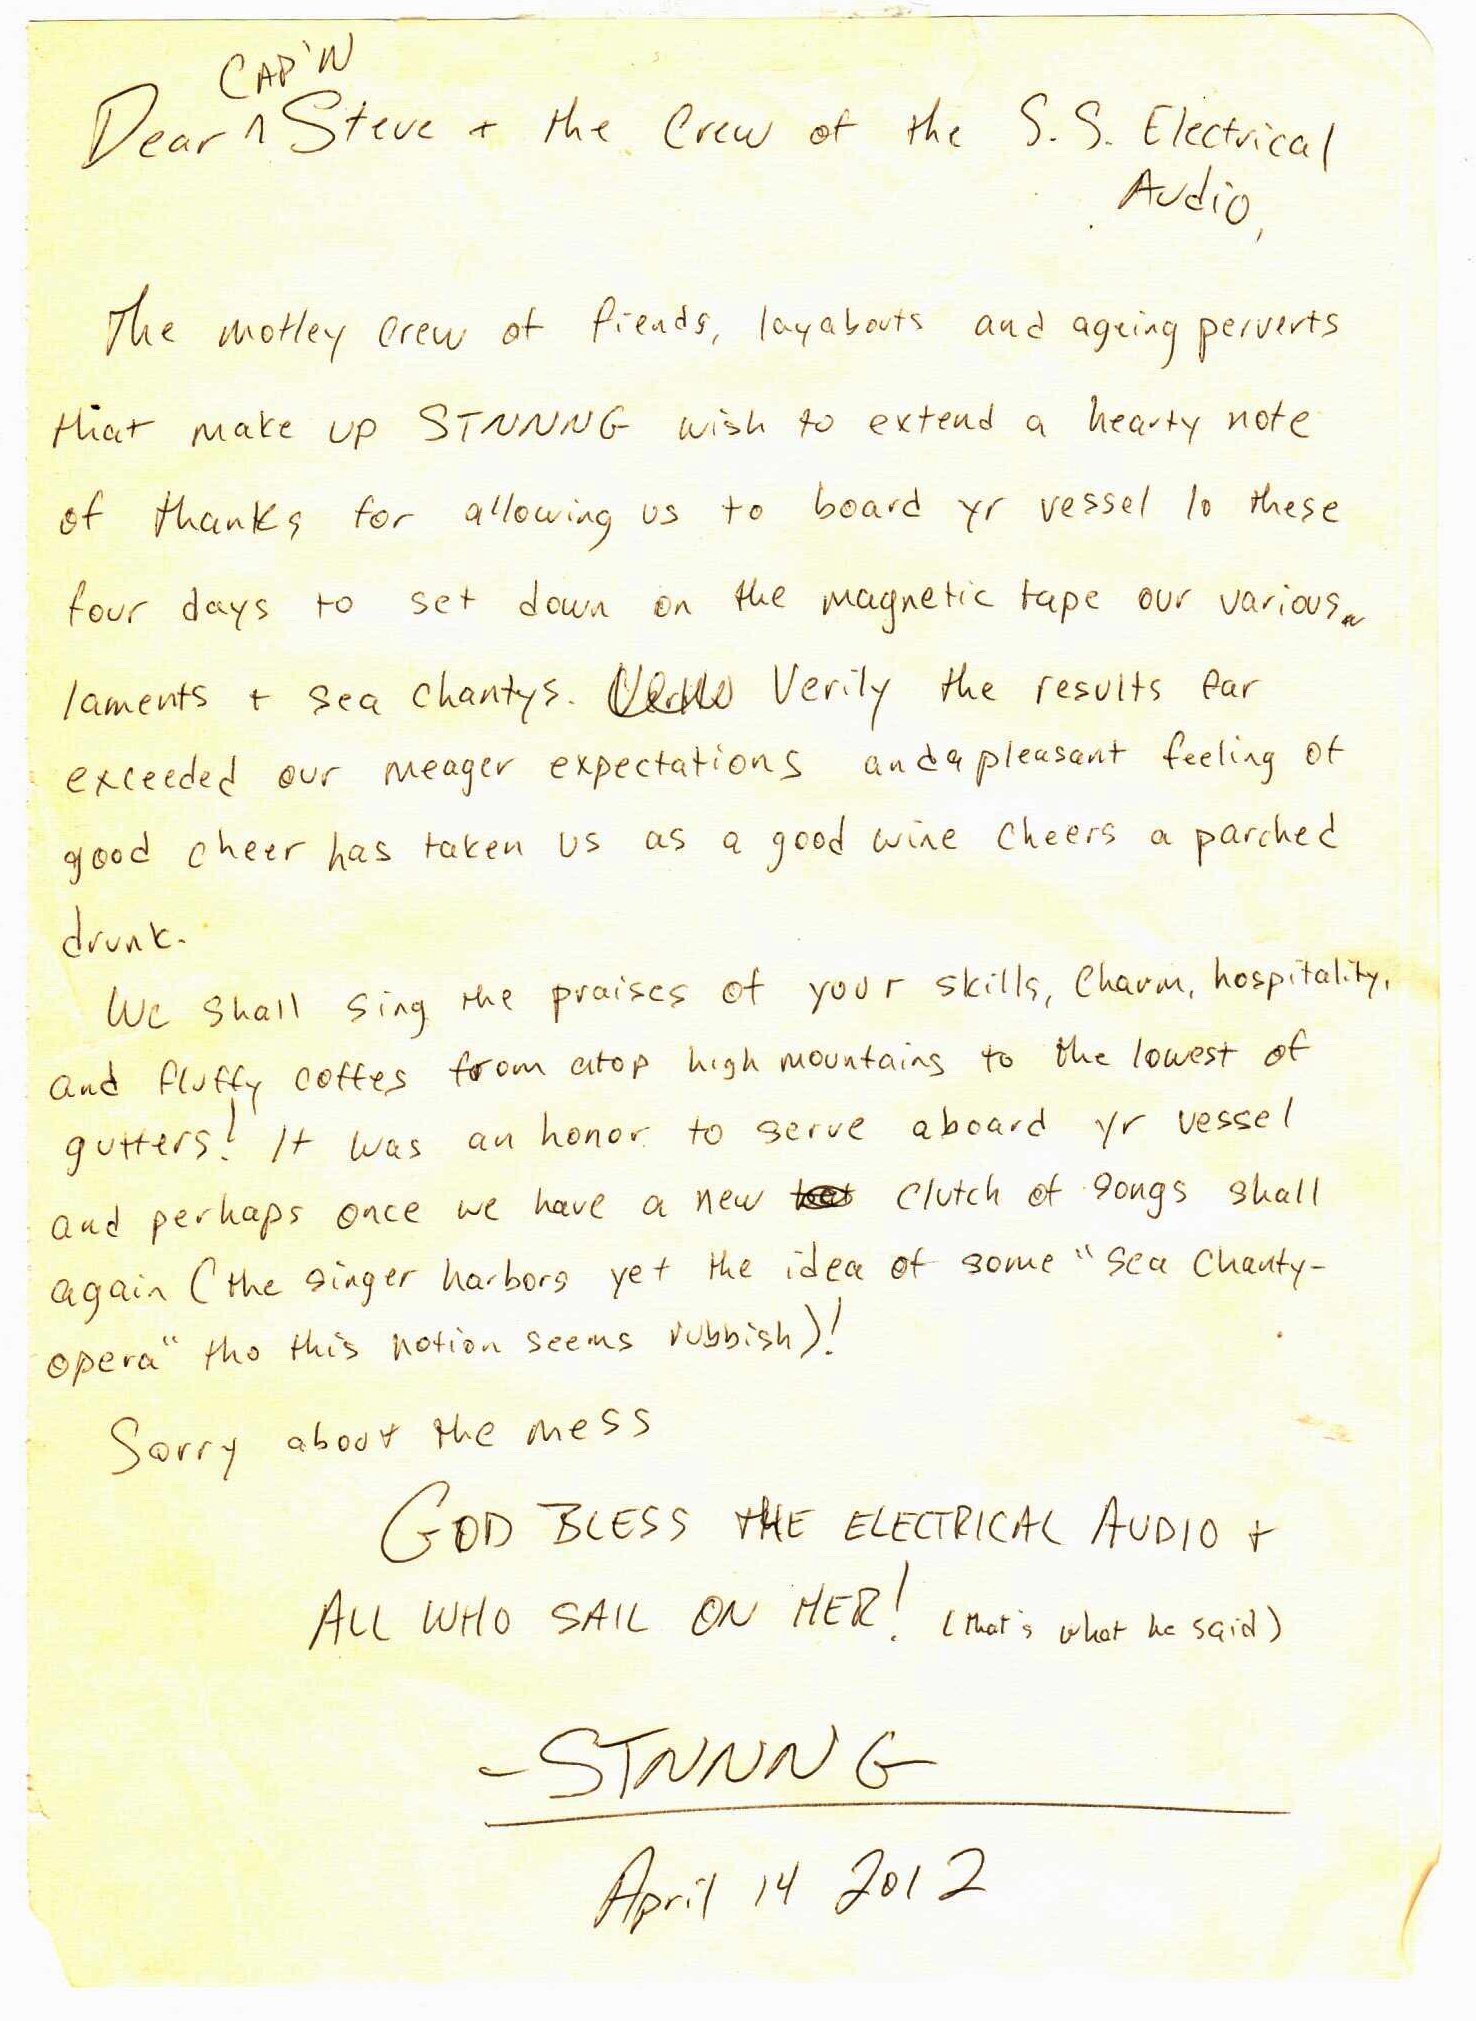 Dear ^ CAP'N Steve + the Crew of the S.S. Electrical
Audio,
The motley crew of fiends, layabouts and ageing perverts
that make up STNNNG wish to extend a hearty note
of thanks for allowing us to board yr vessel lo these
four days to set down on the magnetic tape our various
laments + sea chantys. Verily the results far
exceeded our meager expectations and a pleasant feeling of
good cheer has taken us as a good wine cheers a parched
drunk.
We shall sing the praises of your skills, charm, hospitality,
and fluffy coffes from atop high mountains to the lowest of
gutters! It was an honor to serve aboard yr vessel
and perhaps once we have a new clutch of songs shall
again (the singer harbors yet the idea of some "sea chanty-
opera" tho this notion seems rubbish)!
Sorry about the mess
GOD BLESS THE ELECTRICAL AUDIO +
ALL WHO SAIL ON HER! (that's what he said)
- STNNNG
April 14 2012